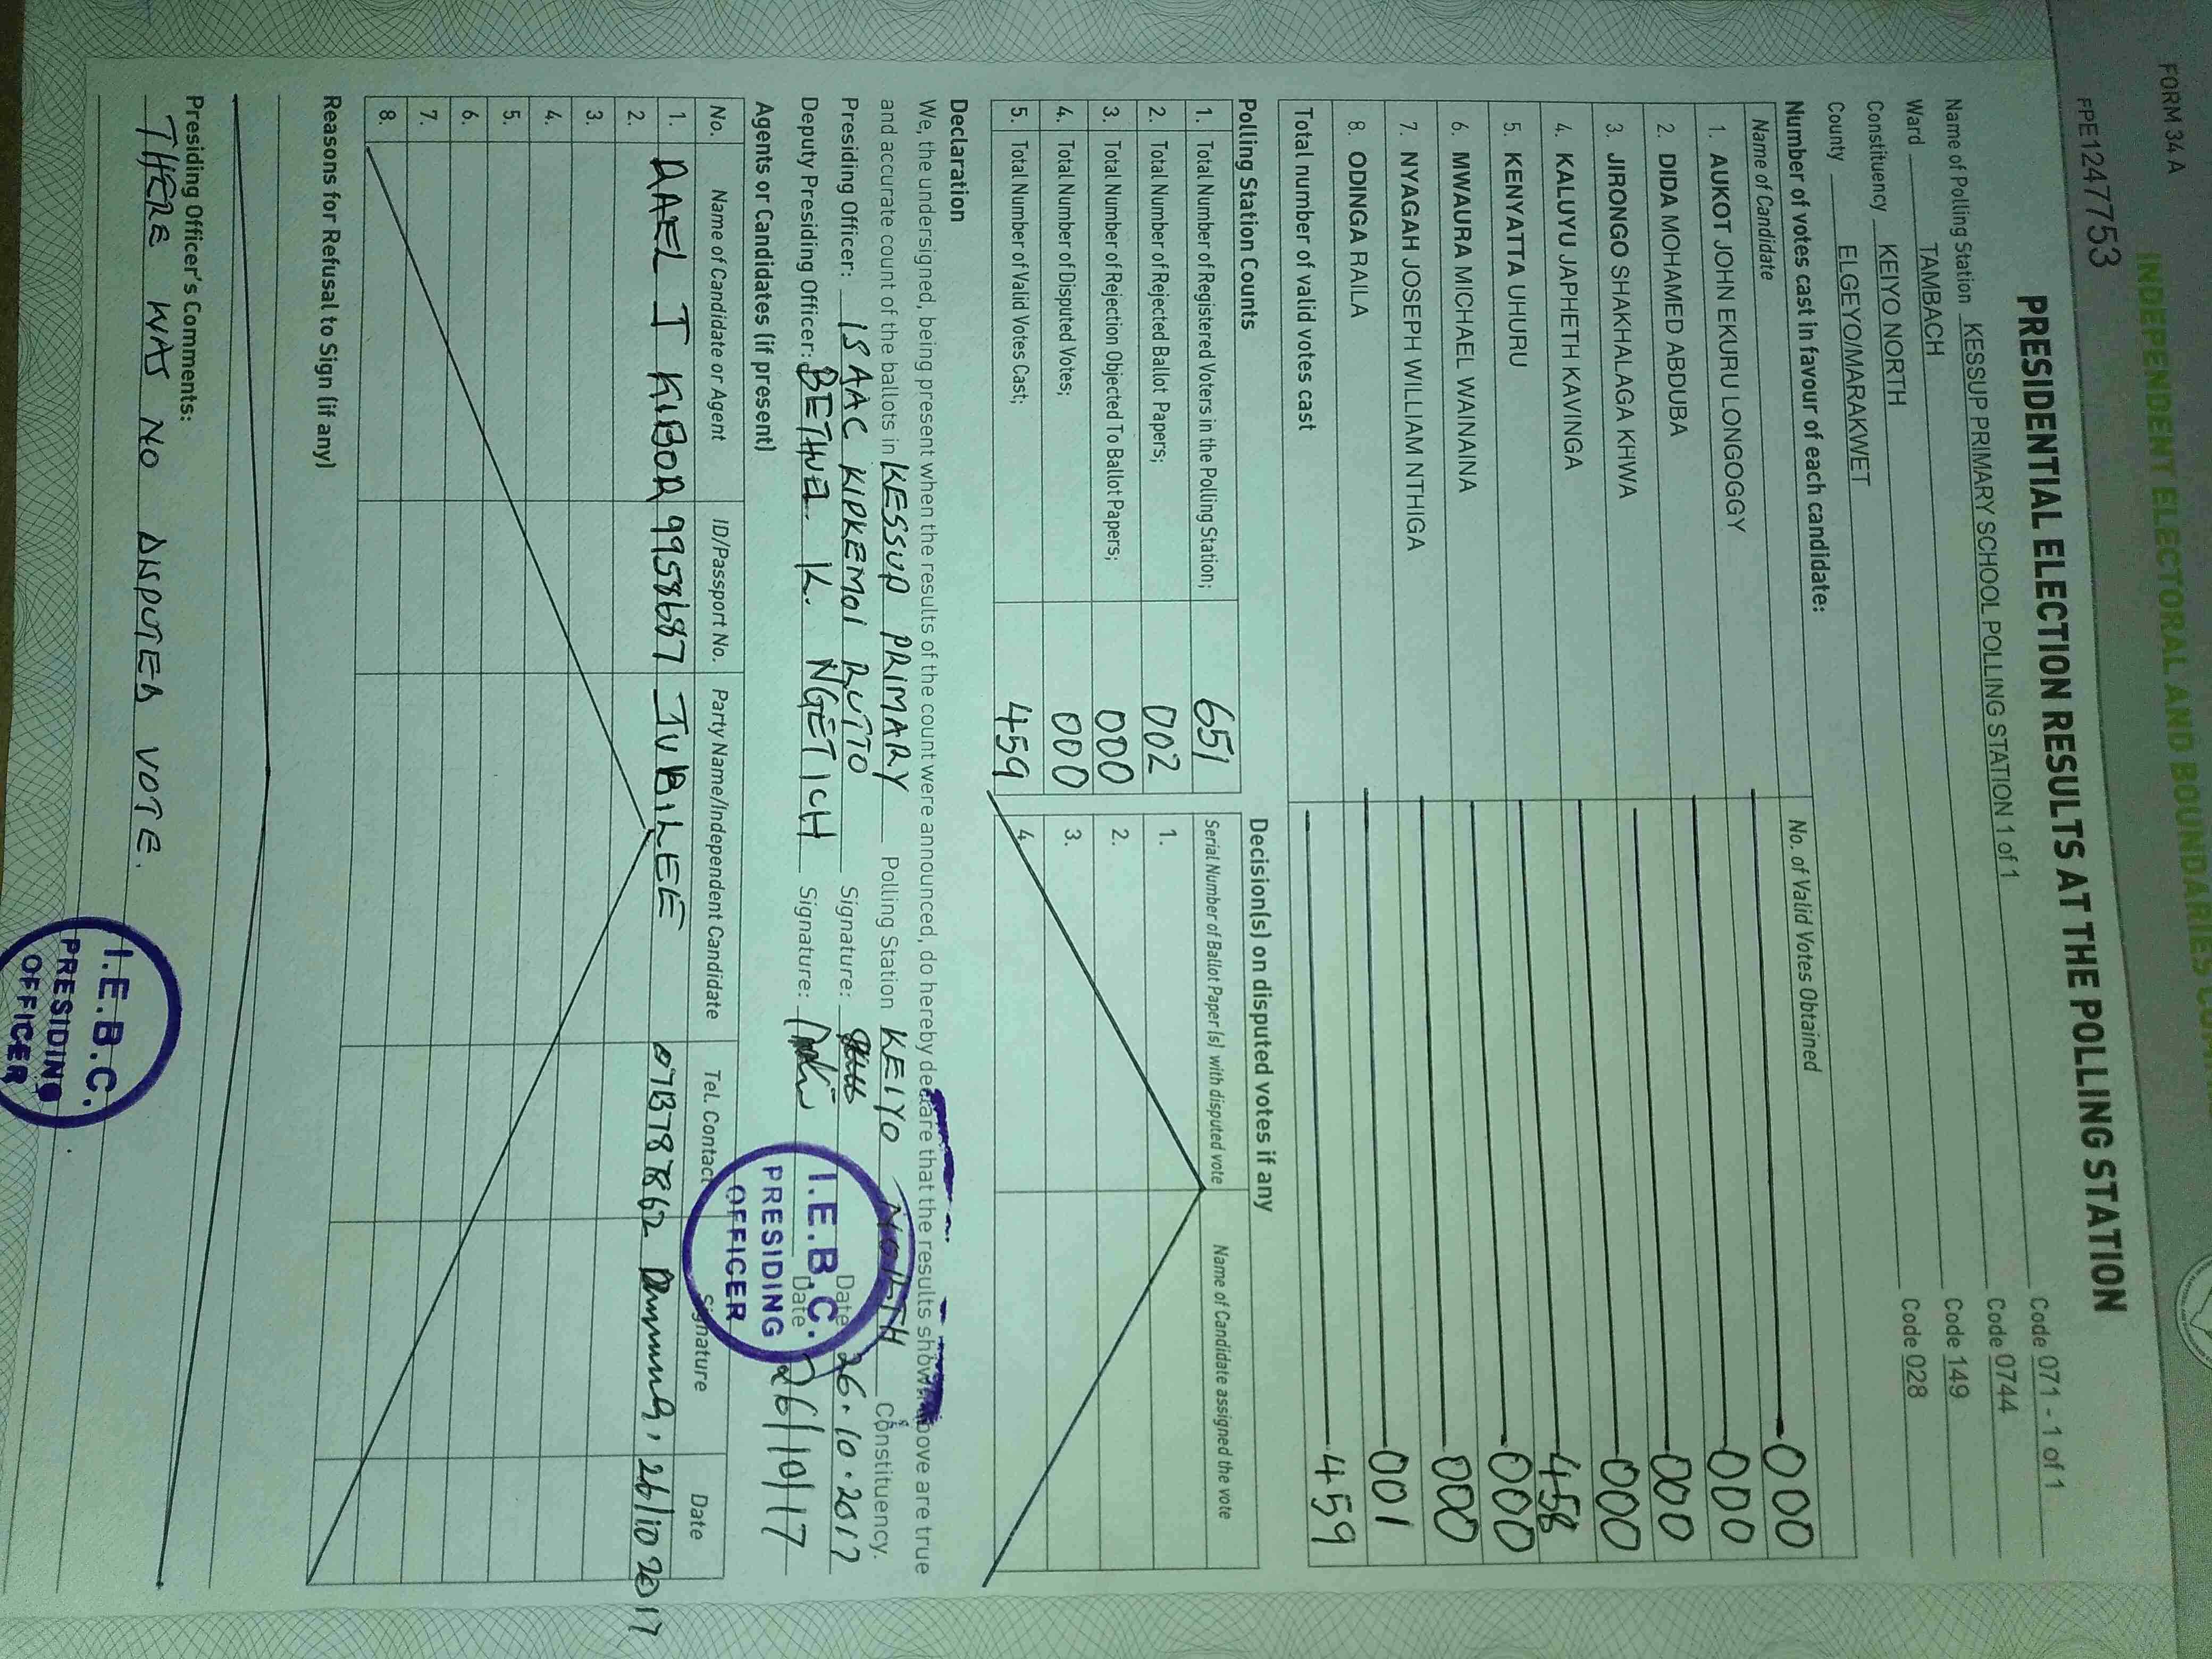 FORM 34 A
INDEPENDENT ELECTORAL AND BOUNDARIES
FPE1247753
PRESIDENTIAL ELECTION RESULTS AT THE POLLING STATION
Name of Polling Station KESSUP PRIMARY SCHOOL POLLING STATION 1 of 1 Code 071 - 1 of 1
Ward TAMBACH Code 0744
Constituency KEIYO NORTH Code 149
County ELGEYO/MARAKWET Code 028
Number of votes cast in favour of each candidate:
Name of Candidate No. of Valid Votes Obtained
1. AUKOT JOHN EKURU LONGOGGY 000
2. DIDA MOHAMED ABDUBA 000
3. JIRONGO SHAKHALAGA KHWA 000
4. KALUYU JAPHETH KAVINGA 000
5. KENYATTA UHURU 458
6. MWAURA MICHAEL WAINAINA 000
7. NYAGAH JOSEPH WILLIAM NTHIGA 000
8. ODINGA RAILA 001
Total number of valid votes cast 459
Polling Station Counts Decision(s) on disputed votes if any
1. Total Number of Registered Voters in the Polling Station; 651 Serial Number of Ballot Paper (s) with disputed vote Name of Candidate assigned the vote
2. Total Number of Rejected Ballot Papers; 002 1.
3. Total Number of Rejection Objected To Ballot Papers; 000 2.
4. Total Number of Disputed Votes; 000 3.
5. Total Number of Valid Votes Cast; 459 4.
Declaration
We, the undersigned, being present when the results of the count were announced, do hereby declare that the results shown above are true
and accurate count of the ballots in KESSUP PRIMARY Polling Station KEIYO NORTH Constituency.
Presiding Officer: ISAAC KIPKEMOI RUTTO Signature: Date 26.10.2017
Deputy Presiding Officer: BETHUEL K. NGETICH Signature: Date 26/10/17
I.E.B.C.
PRESIDING
OFFICER
Agents or Candidates (if present)
No. Name of Candidate or Agent ID/Passport No. Party Name/Independent Candidate Tel. Contact Signature Date
1. RAEL J KIBOR 9958687 JUBILEE 26/10 2017
2.
3.
4.
5.
6.
7.
8.
Reasons for Refusal to Sign (if any)
Presiding Officer's Comments:
THERE WAS NO DISPUTED VOTE.
I.E.B.C.
PRESIDING
OFFICER